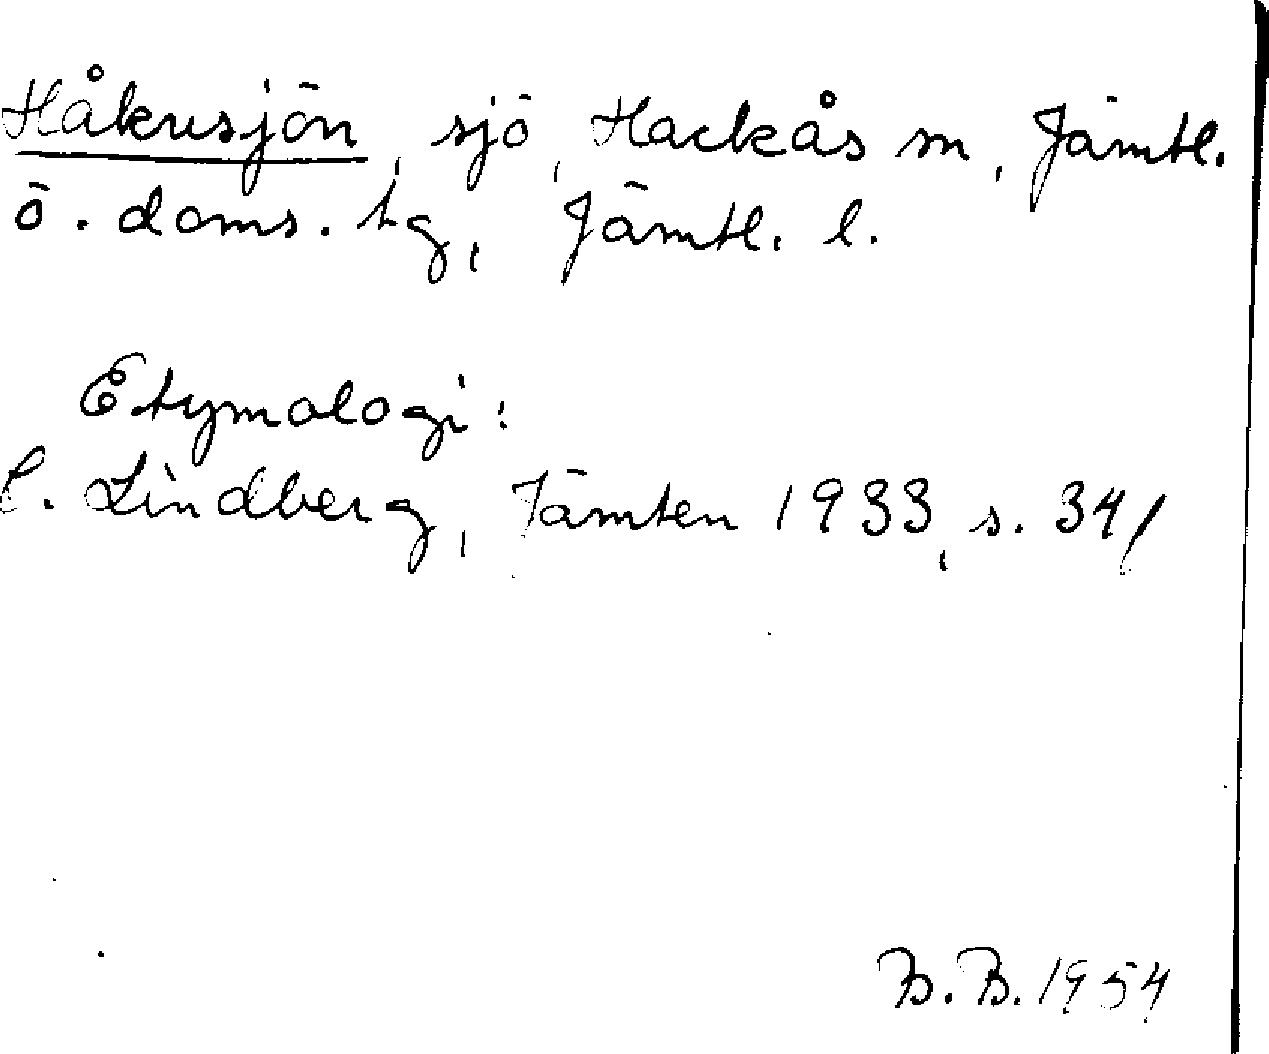 Håkusjön, sjö, Hackås sn, Jämtl.
ö. doms. tg, Jämtl. l.
Etymologi:
C. Lindberg, Jämten 1933, s. 34/
B. B. 1954